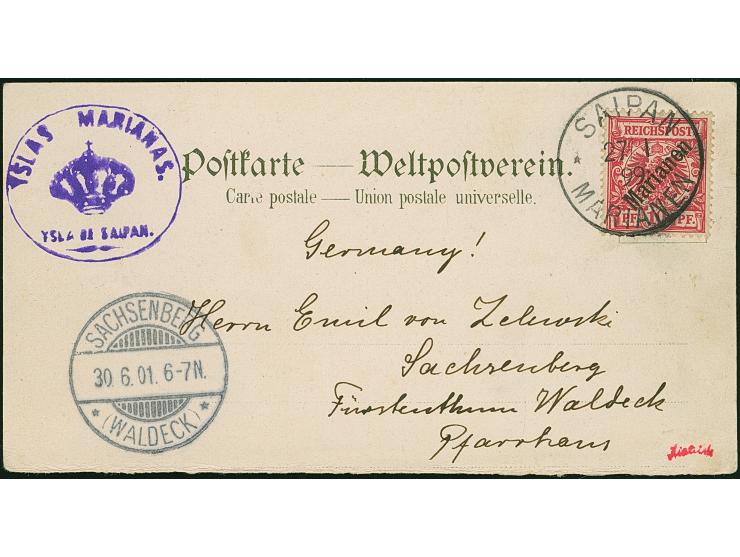 YSLAS MARIANAS.
YSLA DE SAIPAN.
Postkarte — Weltpostverein.
Carte postale — Union postale universelle.
SAIPAN
MARIANEN
REICHSPOST
Marianen
Germany!
Herrn Emil von Zelewski
Sachsenberg
Fürstenthum Waldeck
Pfarrhaus
SACHSENBERG
30.6.01. 6-7N.
* (WALDECK) *